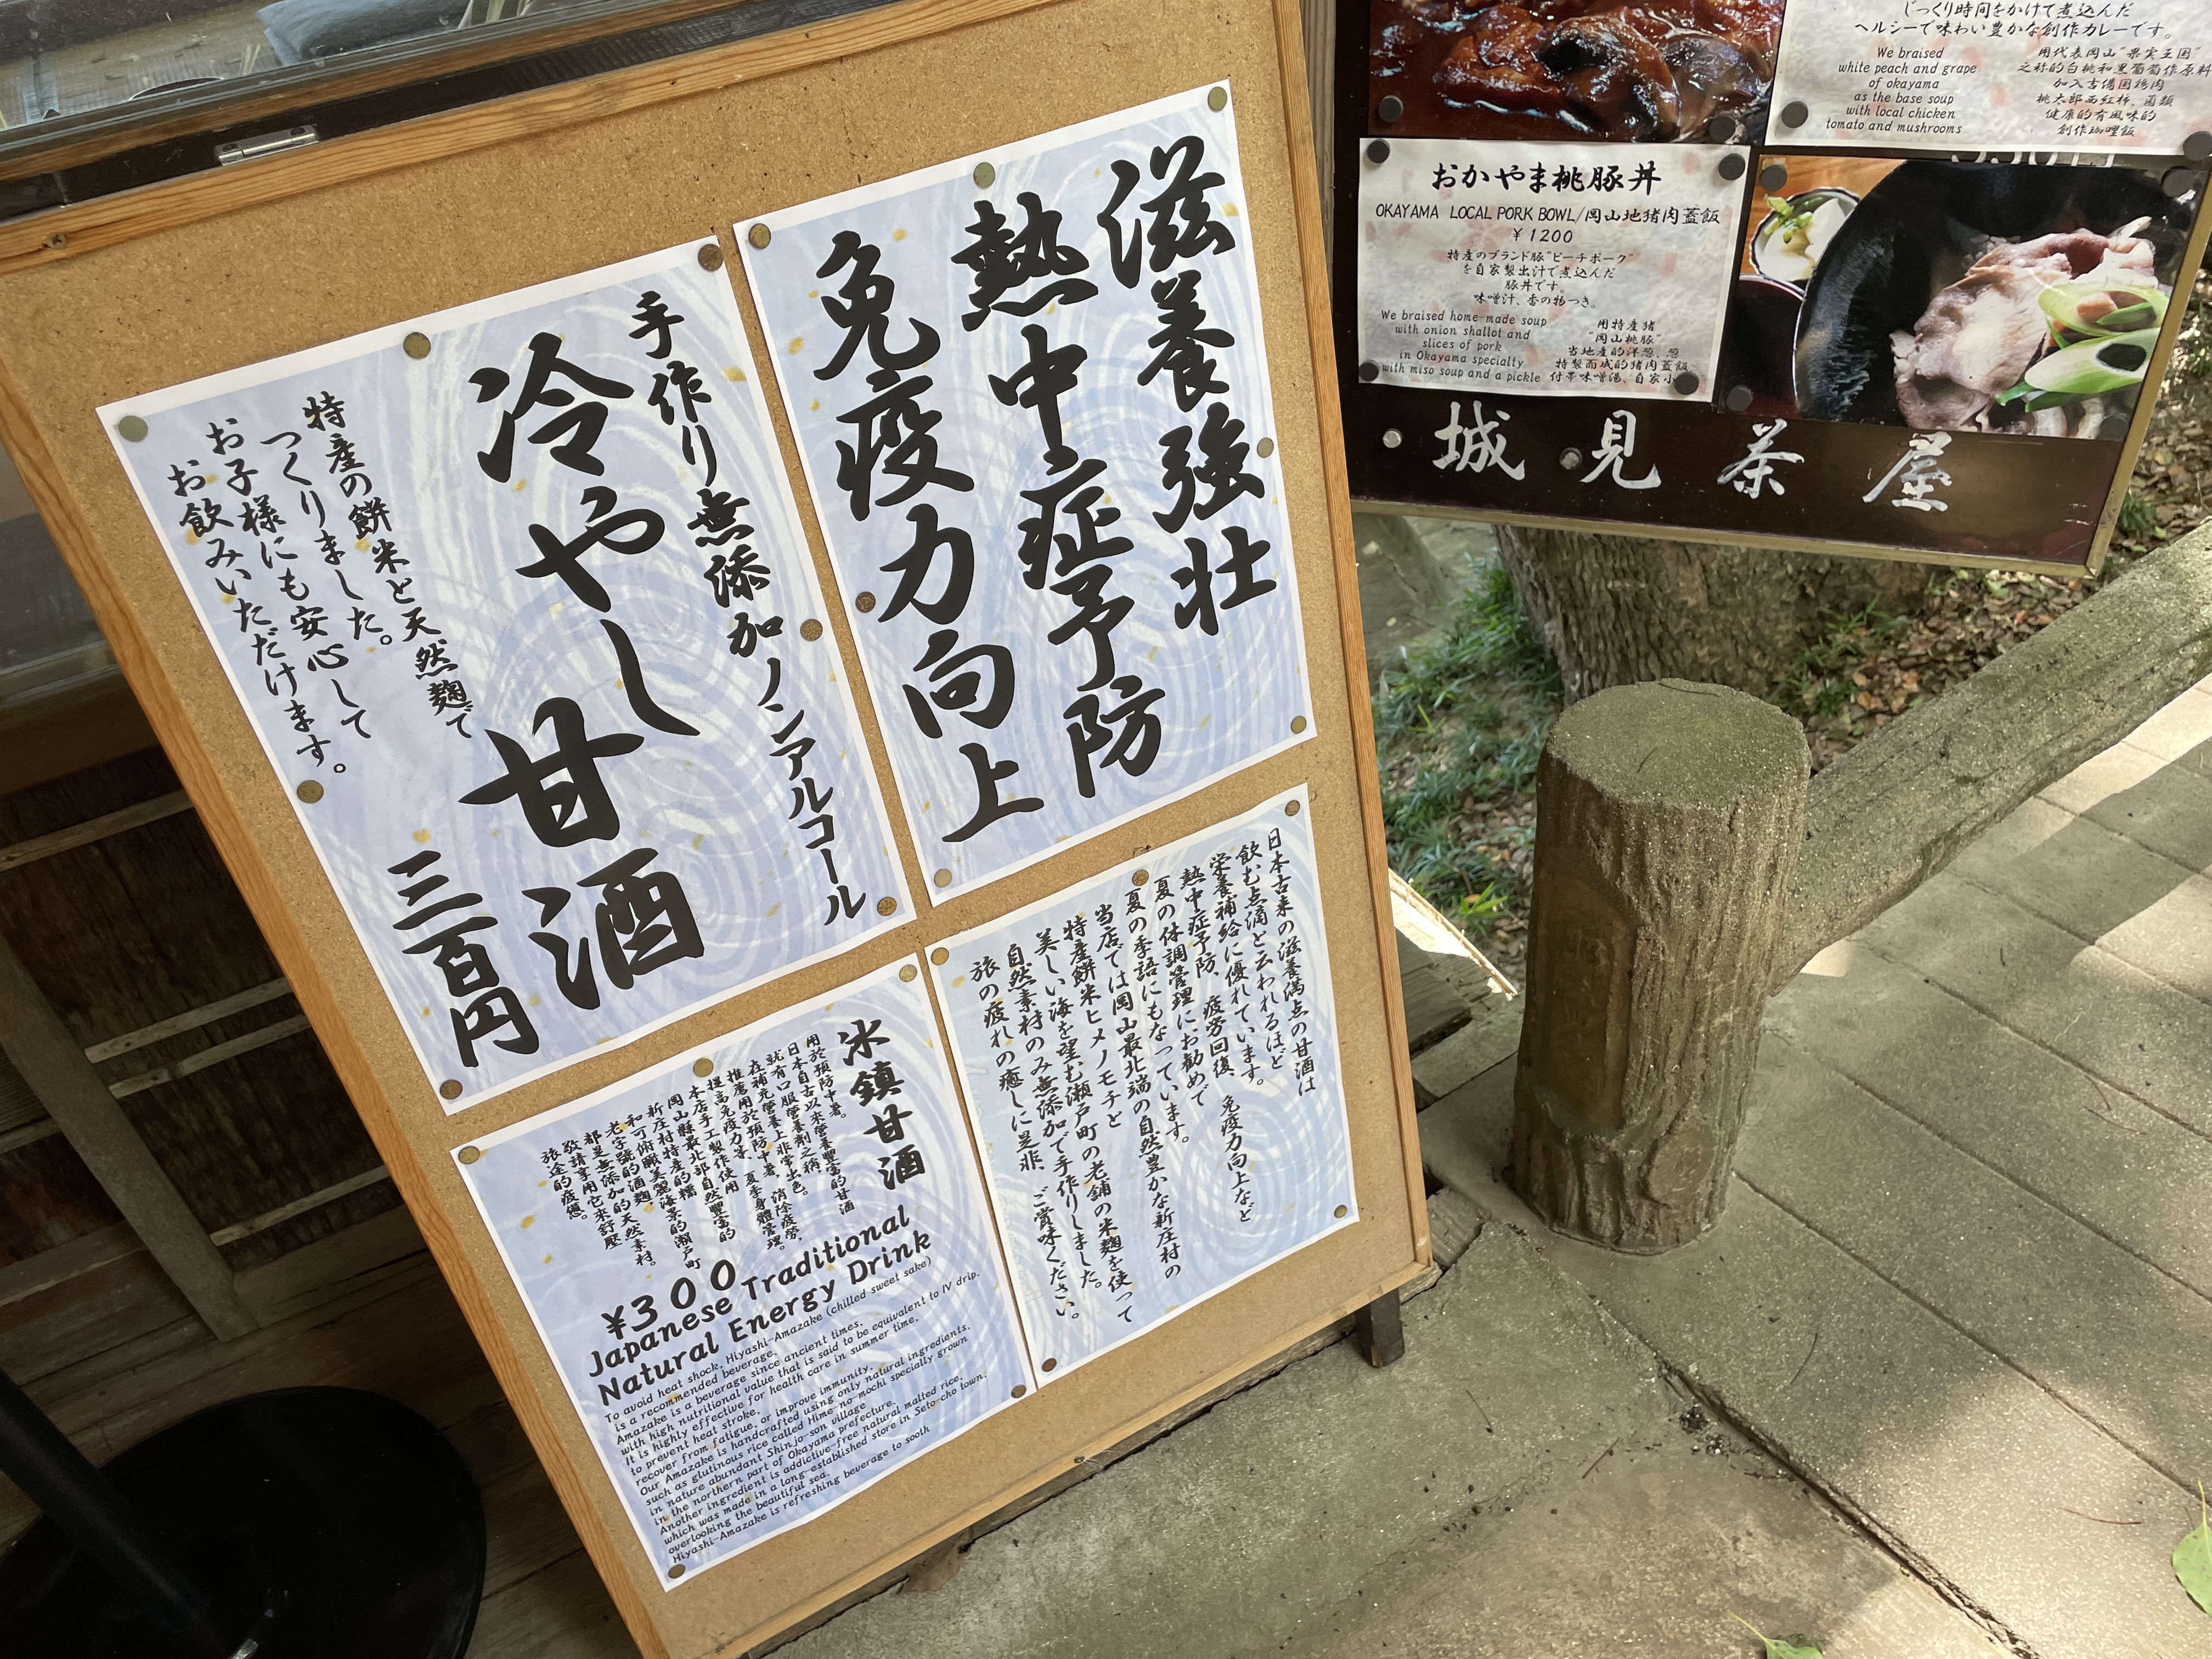 滋養強壮
熱中症予防
免疫力向上
手作り無添加ノンアルコール
冷やし甘酒
特産の餅米と天然麹で
つくりました。
お子様にも安心して
お飲みいただけます。
三百円
日本古来の滋養満点の甘酒は
飲む点滴と云われるほど
栄養補給に優れています。
熱中症予防、疲労回復、免疫力向上など
夏の体調管理にお勧めで
夏の季語にもなっています。
当店では岡山最北端の自然豊かな新庄村の
特産餅米ヒメノモチと
美しい海を望む瀬戸町の老舗の米麹を使って
自然素材のみ無添加で手作りしました。
旅の疲れの癒しに是非、ご賞味ください。
冰鎮甘酒
用於預防中暑。
日本自古以來營養豐富的甘酒
就有口服營養劑之稱，
在補充營養上非常出色。
推薦用於預防中暑、消除疲勞，
提高免疫力等、夏季身體管理。
本店手工製作使用
岡山縣最北部自然豐富的
新庄村特產的糯
和可俯瞰美麗海景的瀨戶町
老字號的酒麹，
都是無添加的天然素材。
敬請享用它來舒壓
旅途的疲憊。
¥300
Japanese Traditional
Natural Energy Drink
To avoid heat shock, Hiyashi-Amazake (chilled sweet sake)
is a recommended beverage.
Amazake is a beverage since ancient times,
with high nutritional value that is said to be equivalent to IV drip.
It is highly effective for health care in summer time,
to prevent heat stroke,
recover from fatigue, or improve immunity.
Our Amazake is handcrafted using only natural ingredients,
such as glutinous rice called Hime-no-mochi specially grown
in nature abundant Shinjo-son village
in the northern part of Okayama prefecture.
Another ingredient is addictive-free natural malted rice,
which was made in a long-established store in Seto-cho town,
overlooking the beautiful sea.
Hiyashi-Amazake is refreshing beverage to sooth
じっくり時間をかけて煮込んだ
ヘルシーで味わい豊かな創作カレーです。
We braised
white peach and grape
of okayama
as the base soup
with local chicken
tomato and mushrooms
用代表岡山"果実王国"
之称的白桃和黒葡萄作原料
加入吉備国鶏肉
桃太郎西紅柿、菌類
健康的有風味的
創作珈哩飯
おかやま桃豚丼
OKAYAMA LOCAL PORK BOWL/岡山地猪肉蓋飯
¥1200
特産のブランド豚"ピーチポーク"
を自家製出汁で煮込んだ
豚丼です。
味噌汁、香の物つき。
We braised home-made soup
with onion shallot and
slices of pork
in Okayama specialty
with miso soup and a pickle
用特産猪
"岡山桃豚"
当地産的洋葱、葱
特製而成的猪肉蓋飯
付帯味噌湯、自家小
城見茶屋